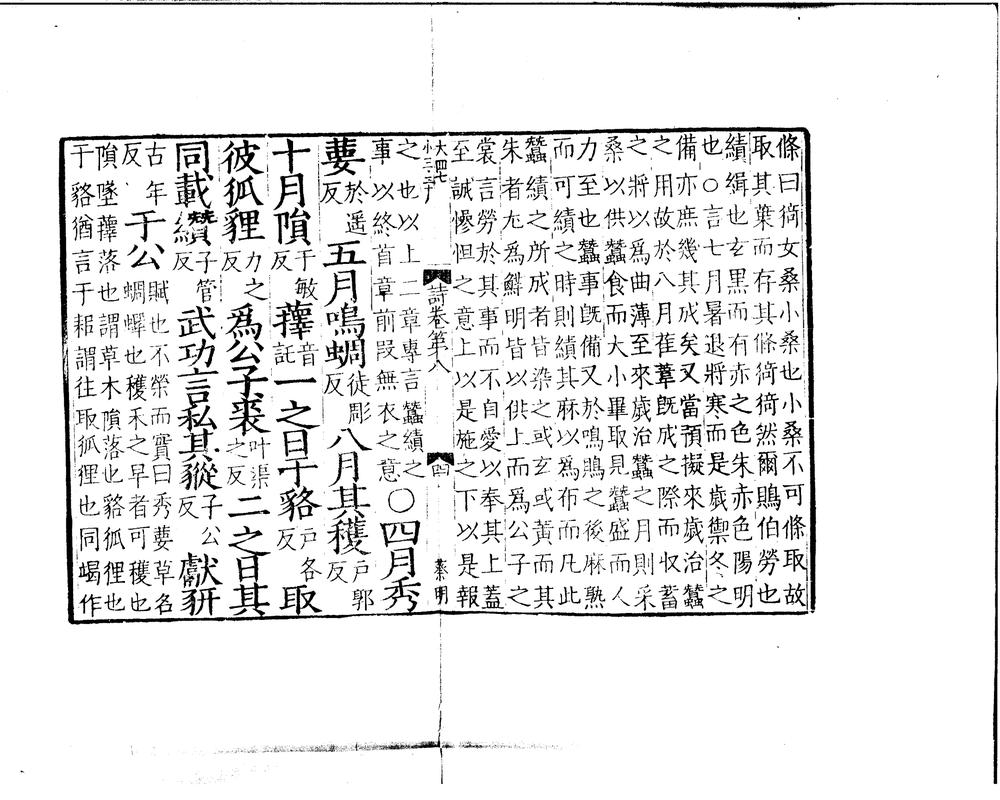 條曰猗女桑小桑也小桑不可條取故
取其葉而存其條猗猗然爾鵙伯勞也
績緝也玄黑而有赤之色朱赤色陽明
也○言七月暑退將寒而是歲禦冬之
備亦庶幾其成矣又當預擬來歲治蠶
之用故於八月萑葦旣成之際而收蓄
之將以爲曲薄至來歲治蠶之月則采
桑以供蠶食而大小畢取見蠶盛而人
力至也蠶事旣備又於鳴鵙之後麻熟
而可績之時則績其麻以爲布而凡此
蠶績之所成者皆染之或玄或黃而其
朱者尤爲鮮明皆以供上而爲公子之
裳言勞於其事而不自愛以奉其上蓋
至誠慘怛之意上以是施之下以是報
大四七
詩卷第八
四
蔡明
之也以上二章專言蠶績之
事以終首章前段無衣之意○四月秀
葽於遥反五月鳴蜩徒彫反八月其穫戶郭反
十月隕于敏反蘀音託一之日于貉戶各反取
彼狐貍力之反爲公子裘叶渠之反二之日其
同載纘子管反武功言私其豵子公反獻豣
古年反于公賦也不榮而實曰秀葽草名
蜩蟬也穫禾之早者可穫也
隕墜蘀落也謂草木隕落也貉狐狸也
于貉猶言于耜謂往取狐狸也同竭作